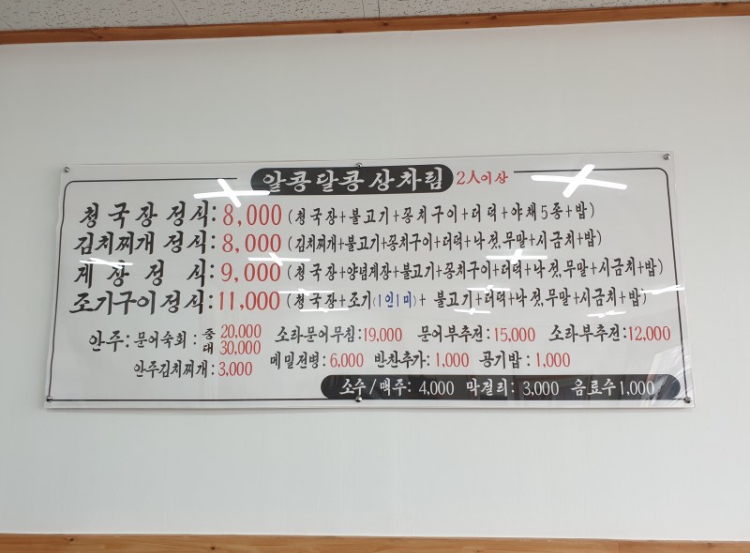 알콩달콩상차림 2人이상
청국장정식: 8,000 (청국장+불고기+꽁치구이+더덕+야채5종+밥)
김치찌개정식: 8,000 (김치찌개+불고기+꽁치구이+더덕+낙젓,무말+시금치+밥)
게장정식: 9,000 (청국장+양념게장+불고기+꽁치구이+더덕+낙젓,무말+시금치+밥)
조기구이정식: 11,000 (청국장+조기(1인1미)+불고기+더덕+낙젓,무말+시금치+밥)
안주: 문어숙회: 중 20,000 대 30,000 소라문어무침: 19,000 문어부추전: 15,000 소라부추전: 12,000
안주김치찌개: 3,000 메밀전병: 6,000 반찬추가: 1,000 공기밥: 1,000
소주/맥주: 4,000 막걸리: 3,000 음료수 1,000